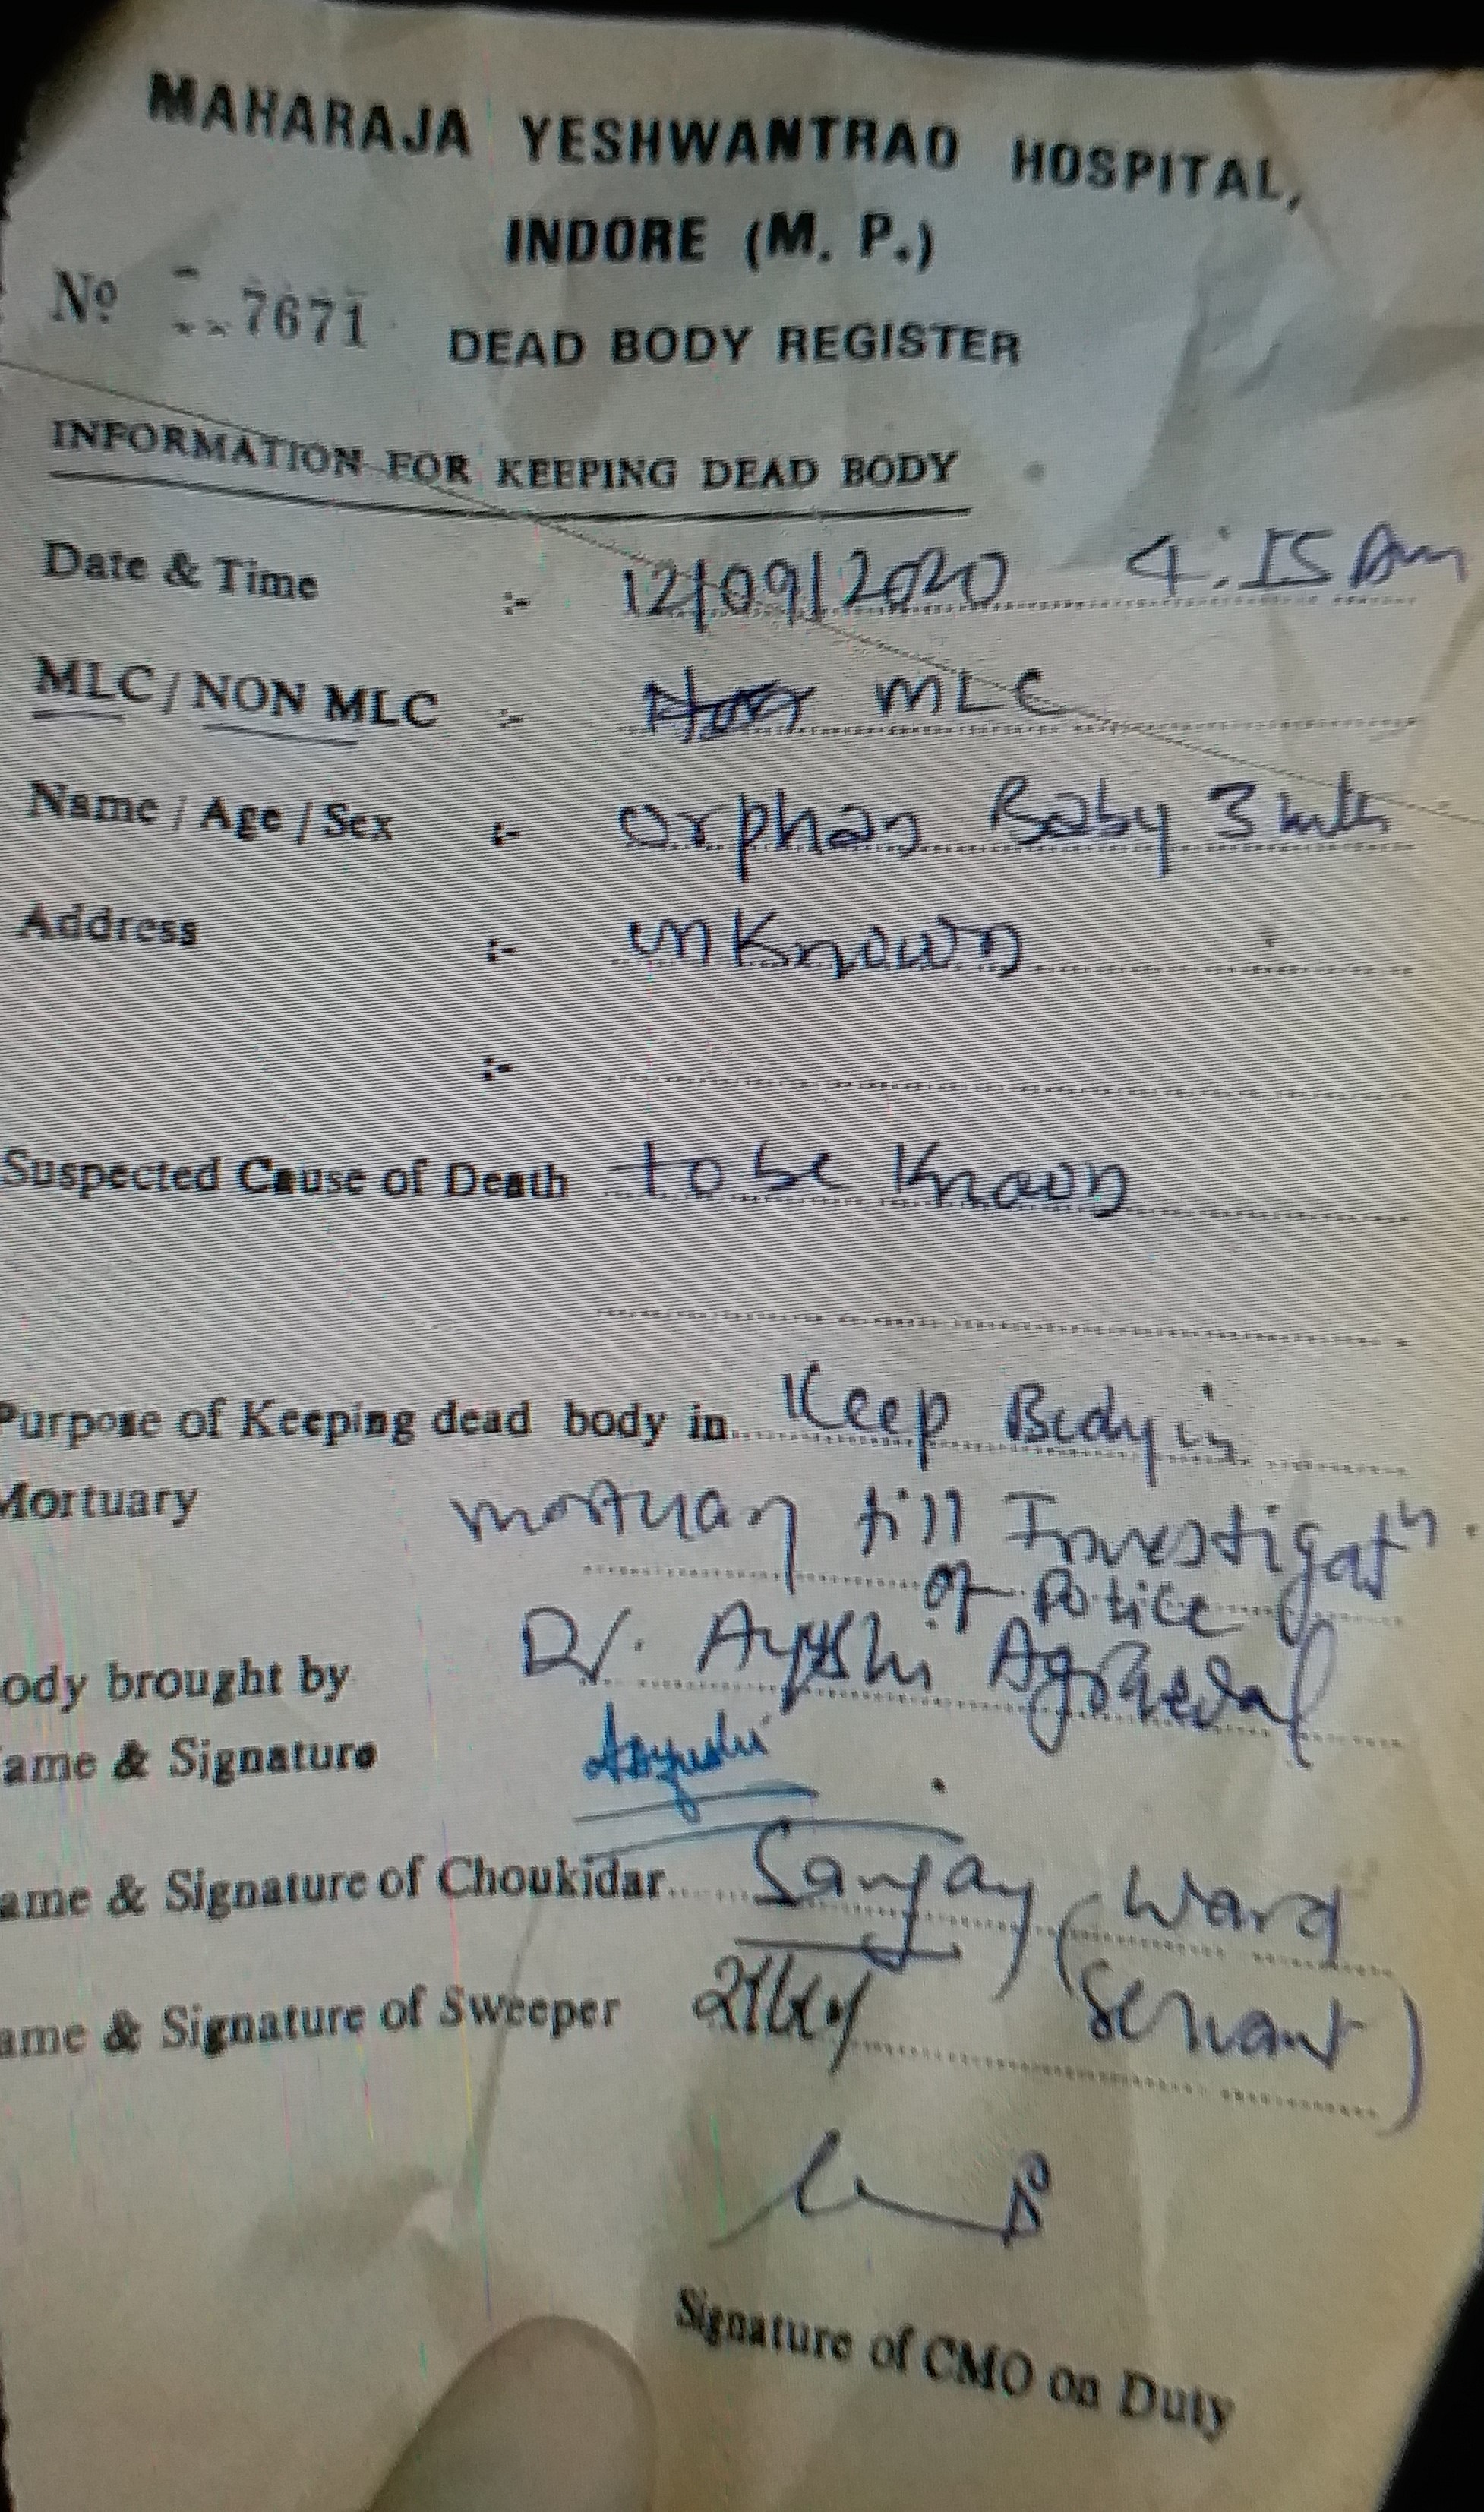 MAHARAJA YESHWANTRAO HOSPITAL,
INDORE (M. P.)
No 7671
DEAD BODY REGISTER
INFORMATION FOR KEEPING DEAD BODY
Date & Time :- 12/09/2020 4:15 Am
MLC / NON MLC :- MLC
Name / Age / Sex :- Orphan Baby 3 mth
Address :- unknown
:-
Suspected Cause of Death to be Knoon
Purpose of Keeping dead body in Keep Body in
Mortuary till Investigatn.
of Police
ody brought by Dr. Ayushi Agrawal
ame & Signature Aayushi
ame & Signature of Choukidar Sanjay (Ward
ame & Signature of Sweeper Servant)
Signature of CMO on Duty